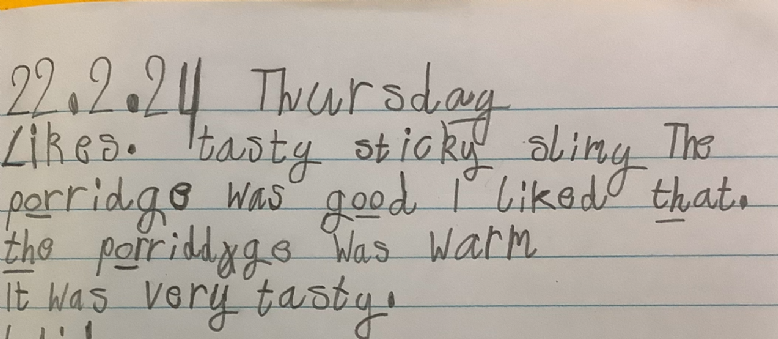 22.2.24 Thursday
Likes. tasty sticky slimy The
porridge was good I liked that.
the porriddyge was warm
It was very tasty.